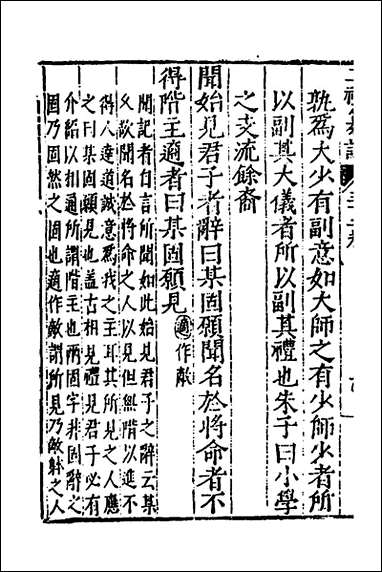 孰為大少有副意如大師之有少師少者所
以副其大儀者所以副其禮也朱子曰小學
之支流餘裔
聞始見君子者辭曰某固願聞名於將命者不
得階主適者曰某固願見 適作敵
聞記者自言所聞如此始見君子之辭云某
久欲聞名於將命之人以見但無階以進不
得人達道誠意為我之主耳其所見之人應
之曰某固願見也盖古相見禮見君子必有
介紹以相通所謂階主也兩固字非固辭之
固乃固然之固也適作敵謂所見乃敵躰之人